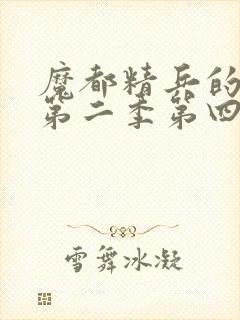 魔都精兵的
第二季第四
雪舞冰凝